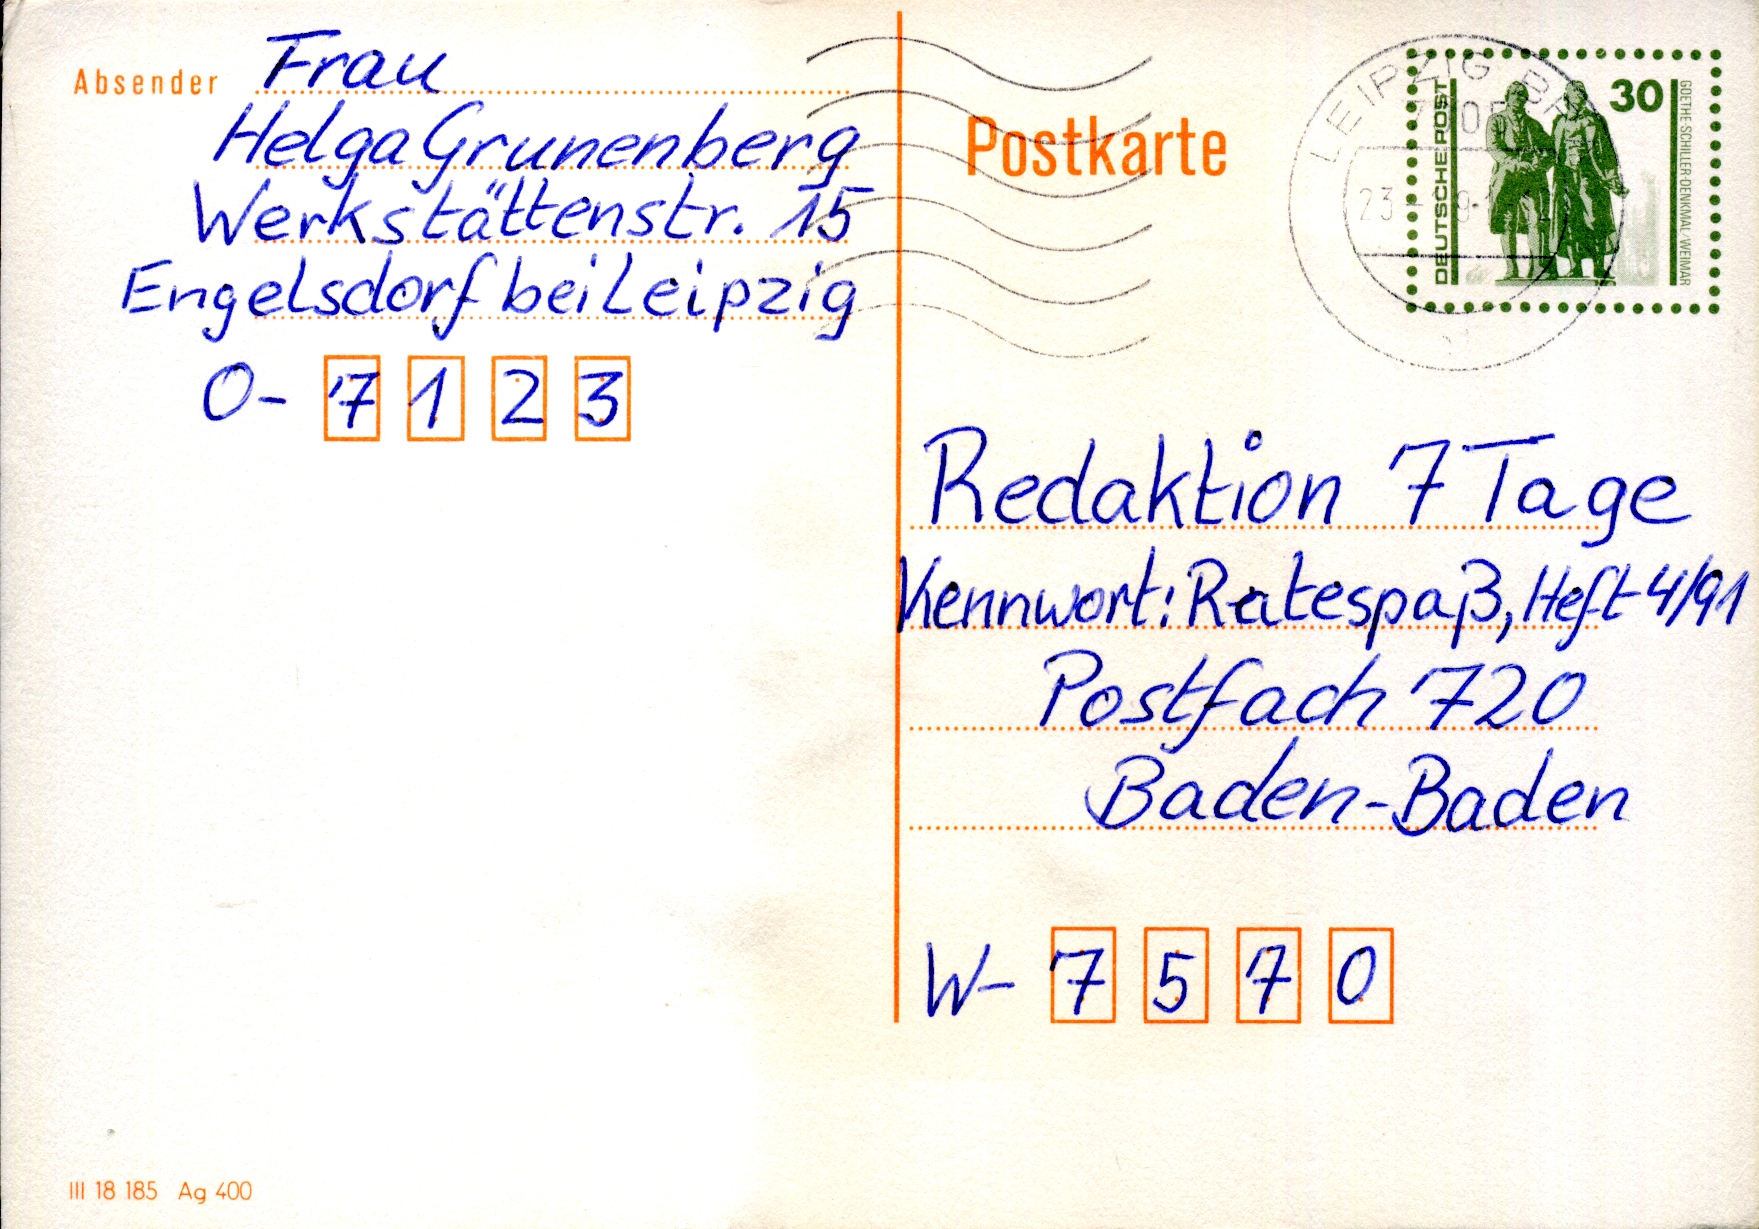 Absender Frau
Helga Grunenberg
Werkstättenstr. 15
Engelsdorf bei Leipzig
O- 7 1 2 3
Postkarte
LEIPZIG
DEUTSCHE POST
30
GOETHE-SCHILLER-DENKMAL/WEIMAR
Redaktion 7 Tage
Kennwort: Ratespaß, Heft 4/91
Postfach 720
Baden-Baden
W- 7 5 7 0
III 18 185 Ag 400